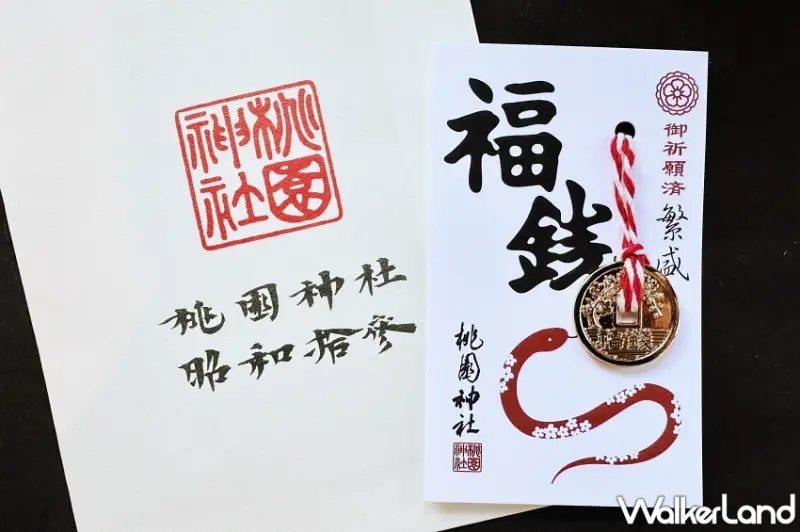 桃園
神社
桃園神社
昭和拾參
福
銭
御祈願済
繁盛
桃園神社
桃園
神社
WalkerLand